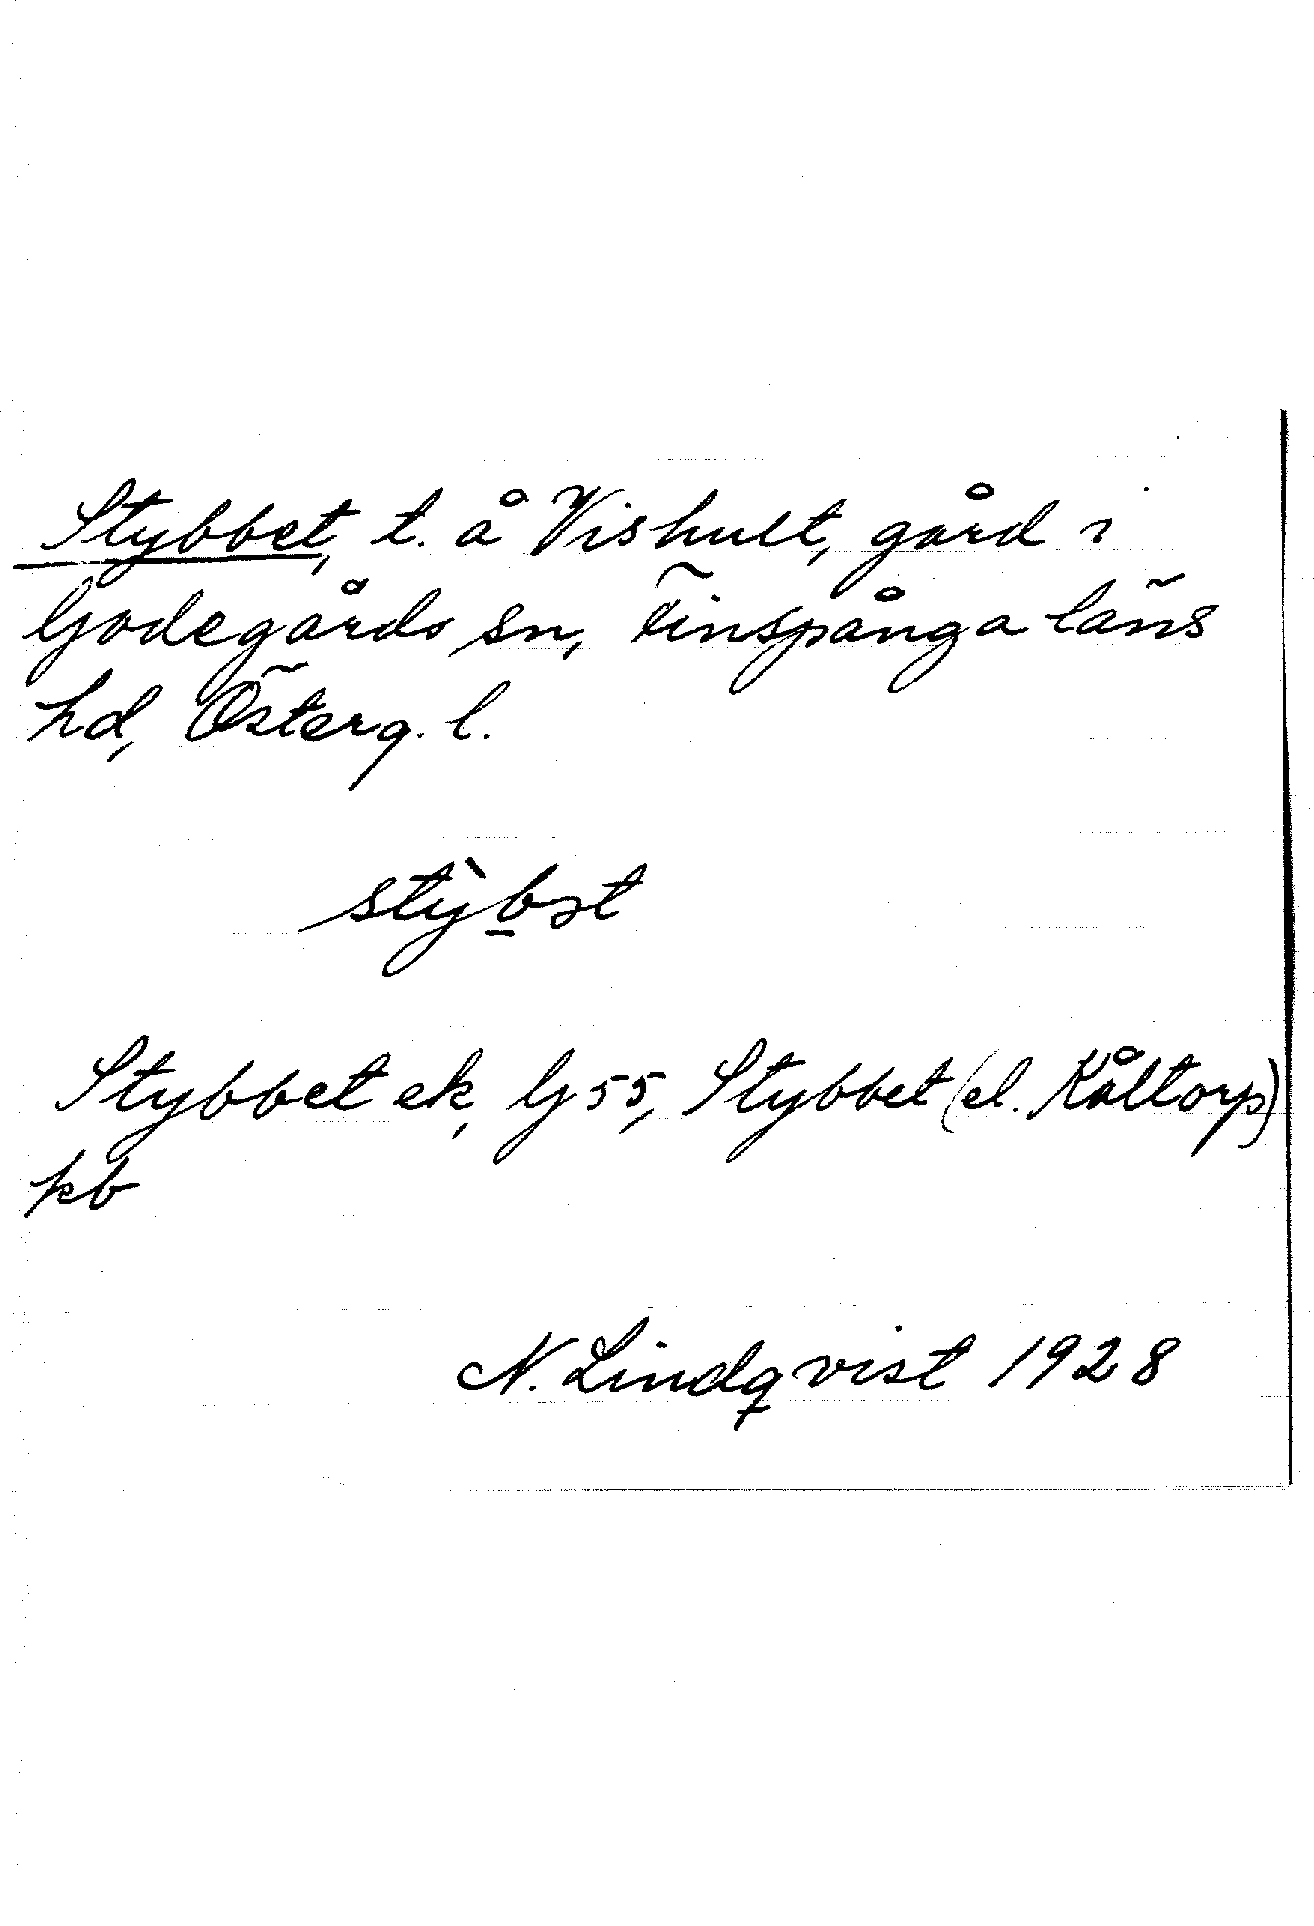 Stybbet, t. å Vishult, gård i
Godegårds sn, Finspånga läns
hd, Österg. l.
stỳb̲ət
Stybbet ek, G 55, Stybbet (el. Kåltorp)
kb
N. Lindqvist 1928